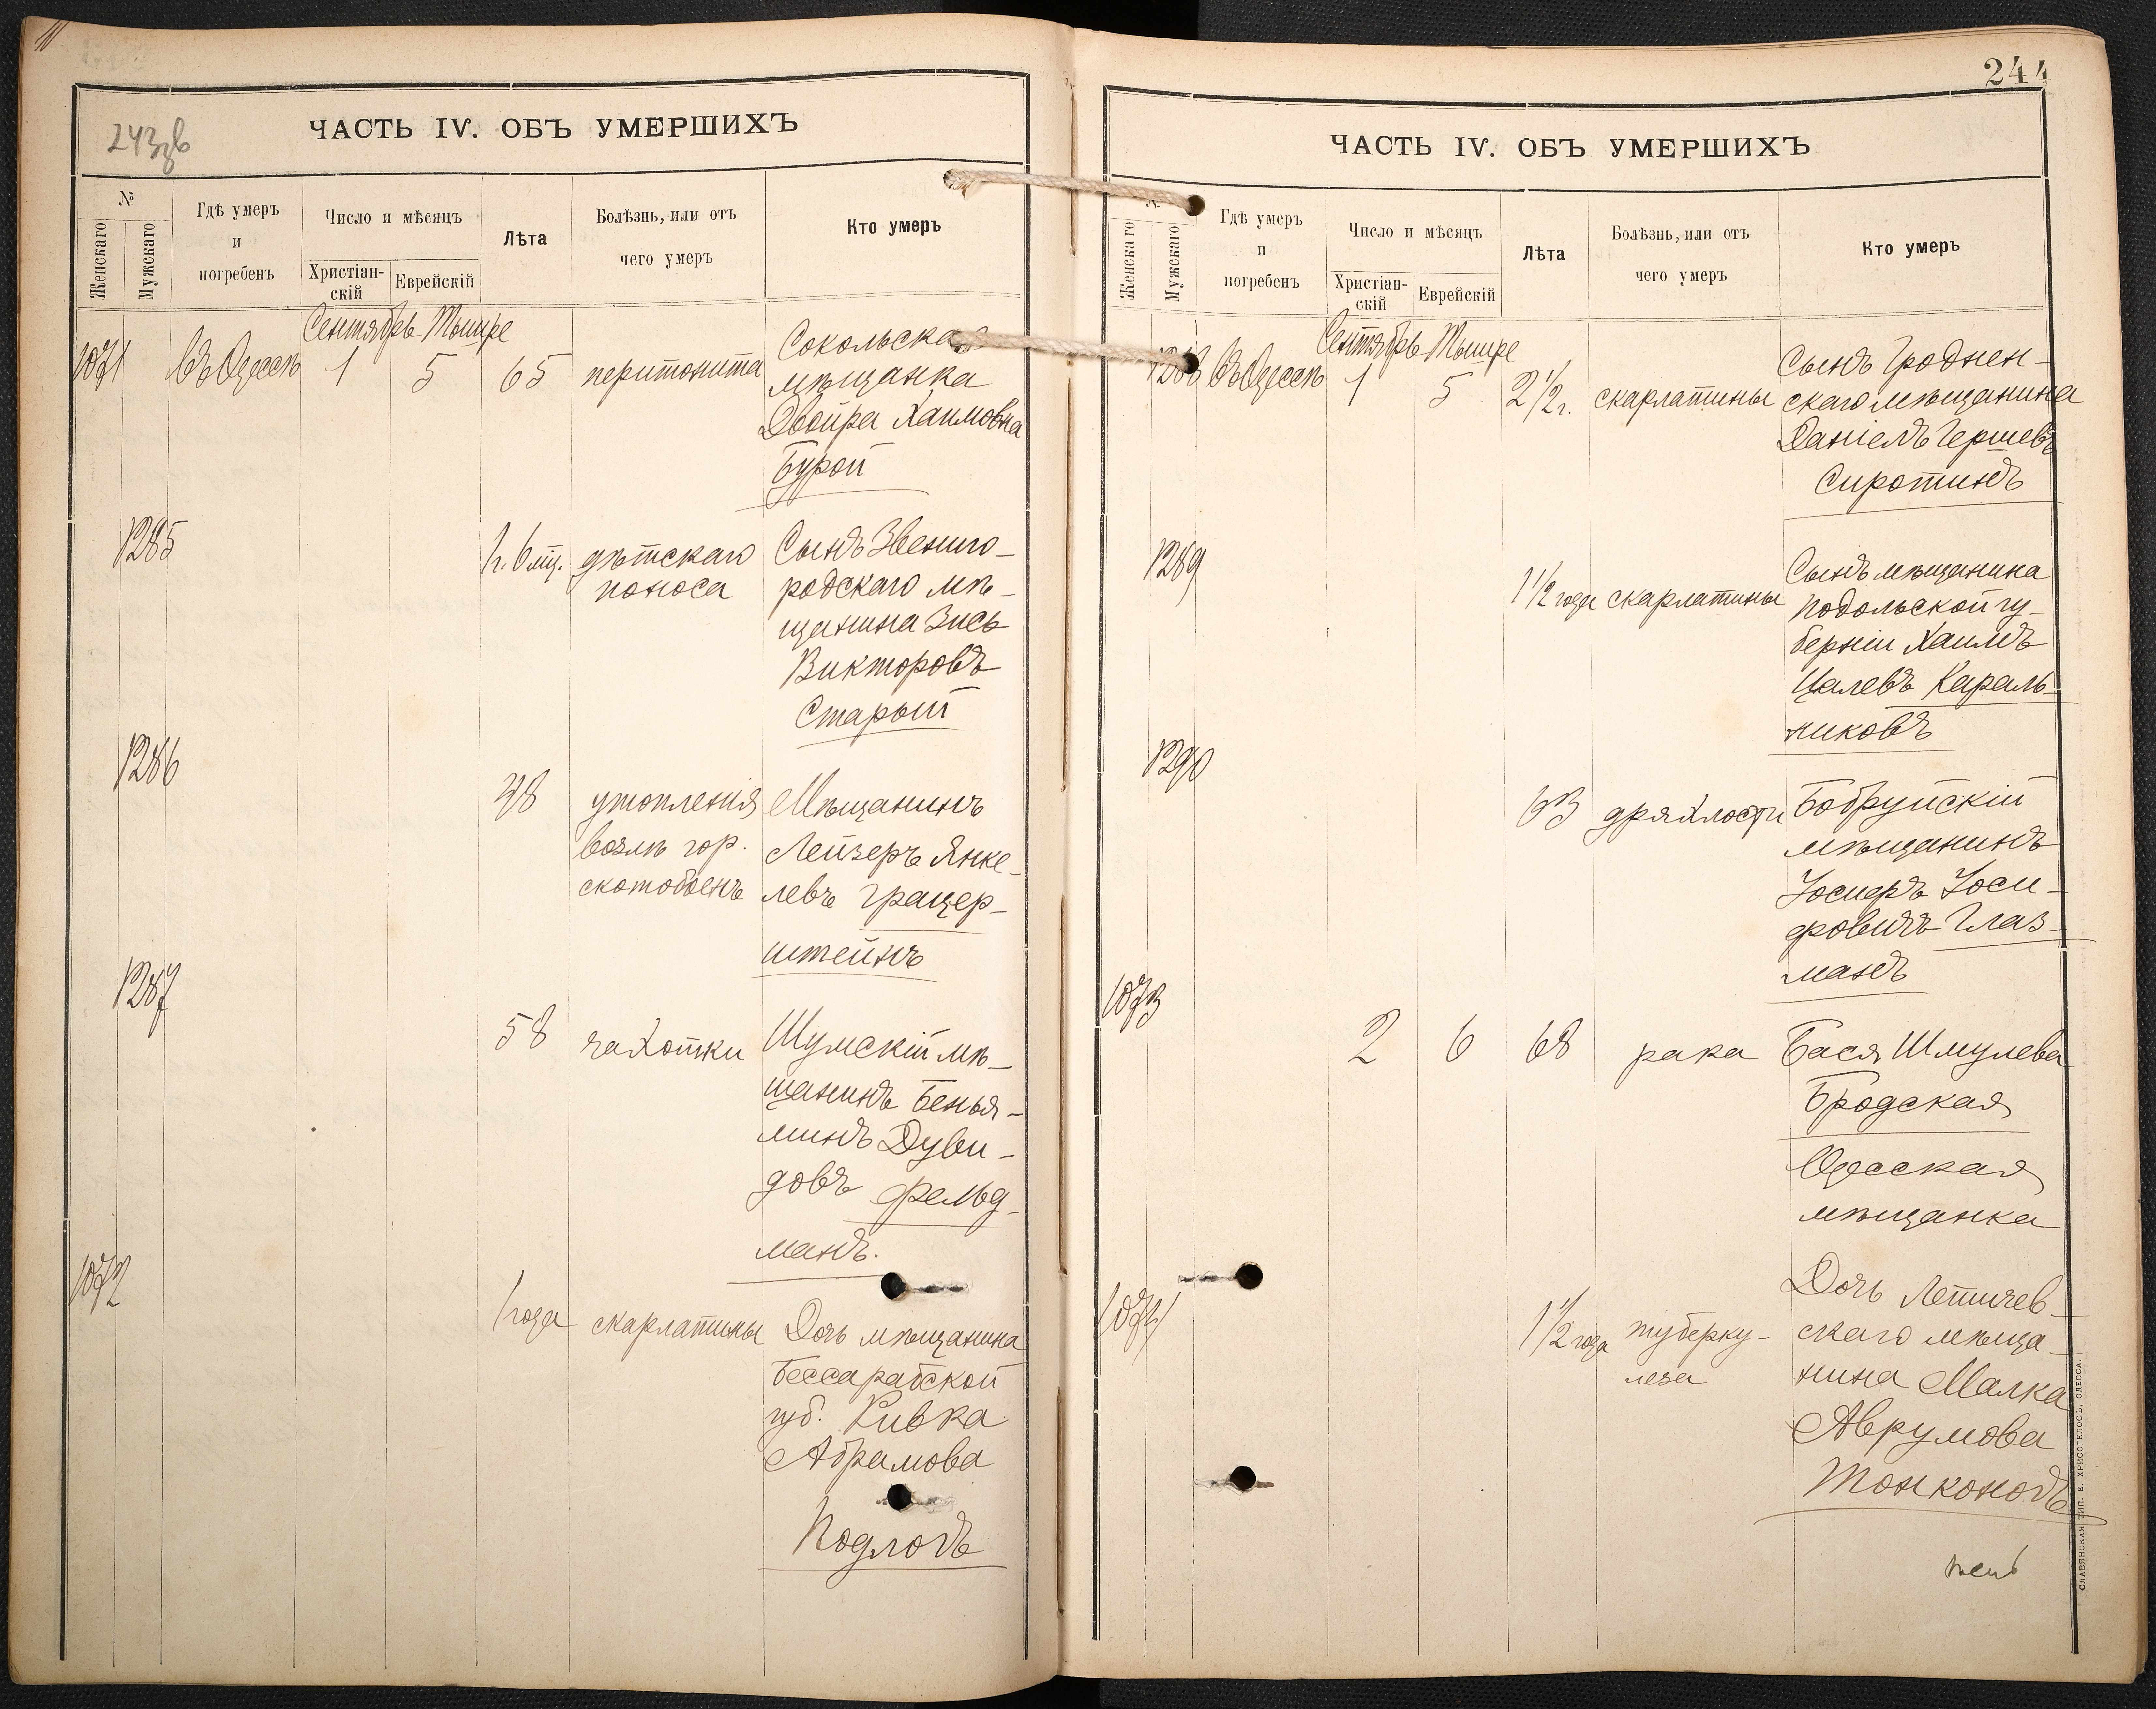 243зв
ЧАСТЬ IV. ОБЪ УМЕРШИХЪ
№
Женскаго
Мужскаго
Гдѣ умеръ
и
погребенъ
Число и мѣсяцъ
Христіан-
скій
Еврейскій
Лѣта
Болѣзнь, или отъ
чего умеръ
Кто умеръ
Сентябрь Тышре
1071 въ Одессѣ 1 5 65 перитонита
Сокольская
мѣщанка
Двойра Хаимовна
Бурой
1285
1 г. 6 мц. дѣтскаго
поноса
Сынъ Звениго-
родскаго мѣ-
щанина Зись
Викторовъ
Старый
1286
38 утопленія
возлѣ гор.
скотобоенъ
Мѣщанинъ
Лейзеръ Янке-
левъ Грацер-
штейнъ
1287
58 чахотки
Шумскій мѣ-
щанинъ Бенья-
минъ Дуви-
довъ Фельд-
манъ.
1072
1 года скарлатины
Дочь мѣщанина
Бессарабской
губ. Ривка
Абрамова
Подлогъ
244
ЧАСТЬ IV. ОБЪ УМЕРШИХЪ
Женскаго
Мужскаго
Гдѣ умеръ
и
погребенъ
Число и мѣсяцъ
Христіан-
скій
Еврейскій
Лѣта
Болѣзнь, или отъ
чего умеръ
Кто умеръ
Сентябрь Тышре
1288 въ Одессѣ 1 5 2 1/2 г. скарлатины
Сынъ Гроднен-
скаго мѣщанина
Даніелъ Гершевъ
Сиротинъ
1289
1 1/2 года скарлатины
Сынъ мѣщанина
Подольской гу-
берніи Хаимъ
Цалевъ Караль-
никовъ
1290
63 дряхлости
Бобруйскій
мѣщанинъ
Іосифъ Іоси-
фовичъ Глаз-
манъ
1073
2 6 68 рака
Бася Шмулева
Бродская
Одесская
мѣщанка
1074
1 1/2 года туберку-
леза
Дочь Летичев-
скаго мѣща-
нина Малка
Аврумова
Тонконогъ
СЛАВЯНСКАЯ ТИП. Е. ХРИСОГЕЛОСЪ, ОДЕССА.